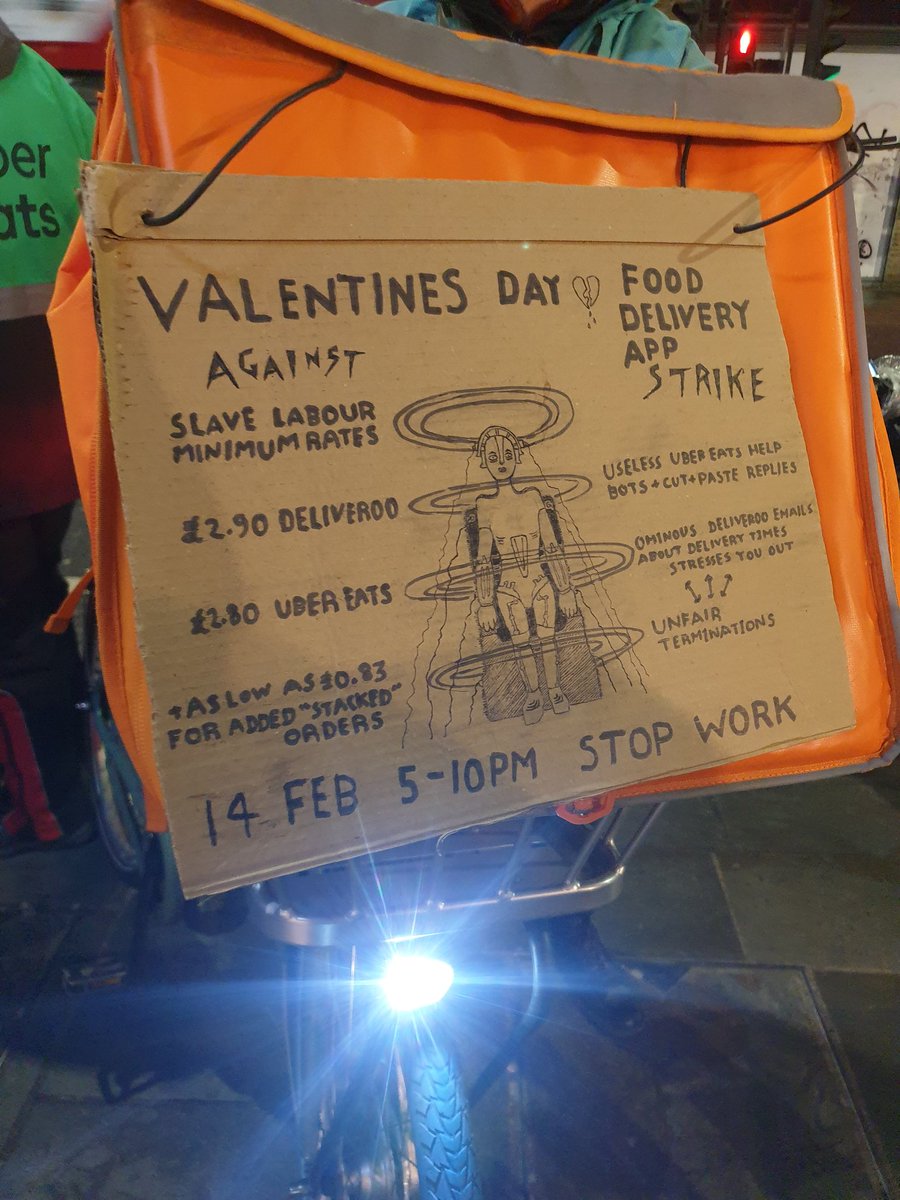 VALENTINES DAY
AGAINST
SLAVE LABOUR
MINIMUM RATES
£2.90 DELIVEROO
£2.80 UBER EATS
+ AS LOW AS £0.83
FOR ADDED "STACKED"
ORDERS
FOOD
DELIVERY
APP
STRIKE
USELESS UBER EATS HELP
BOTS + CUT+PASTE REPLIES
OMINOUS DELIVEROO EMAILS
ABOUT DELIVERY TIMES
STRESSES YOU OUT
UNFAIR
TERMINATIONS
14 FEB 5-10PM STOP WORK
ber
ats